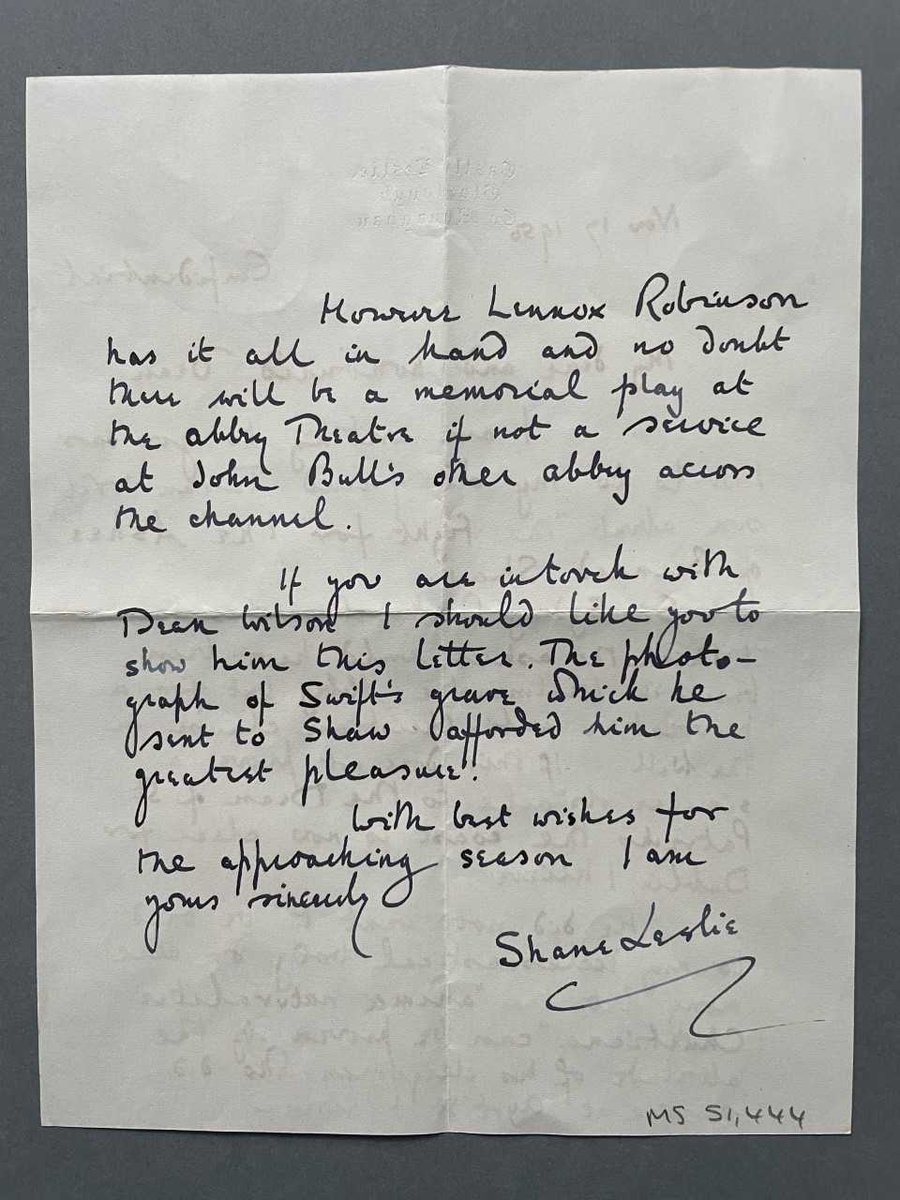 However Lennox Robinson
has it all in hand and no doubt
there will be a memorial play at
the abbey Theatre if not a service
at John Bull's other abbey across
the channel.
If you are in touch with
Dean Wilson I should like you to
show him this letter. The photo-
graph of Swift's grave which he
sent to Shaw afforded him the
greatest pleasure!
With best wishes for
the approaching season I am
yours sincerely
Shane Leslie
MS 51,444